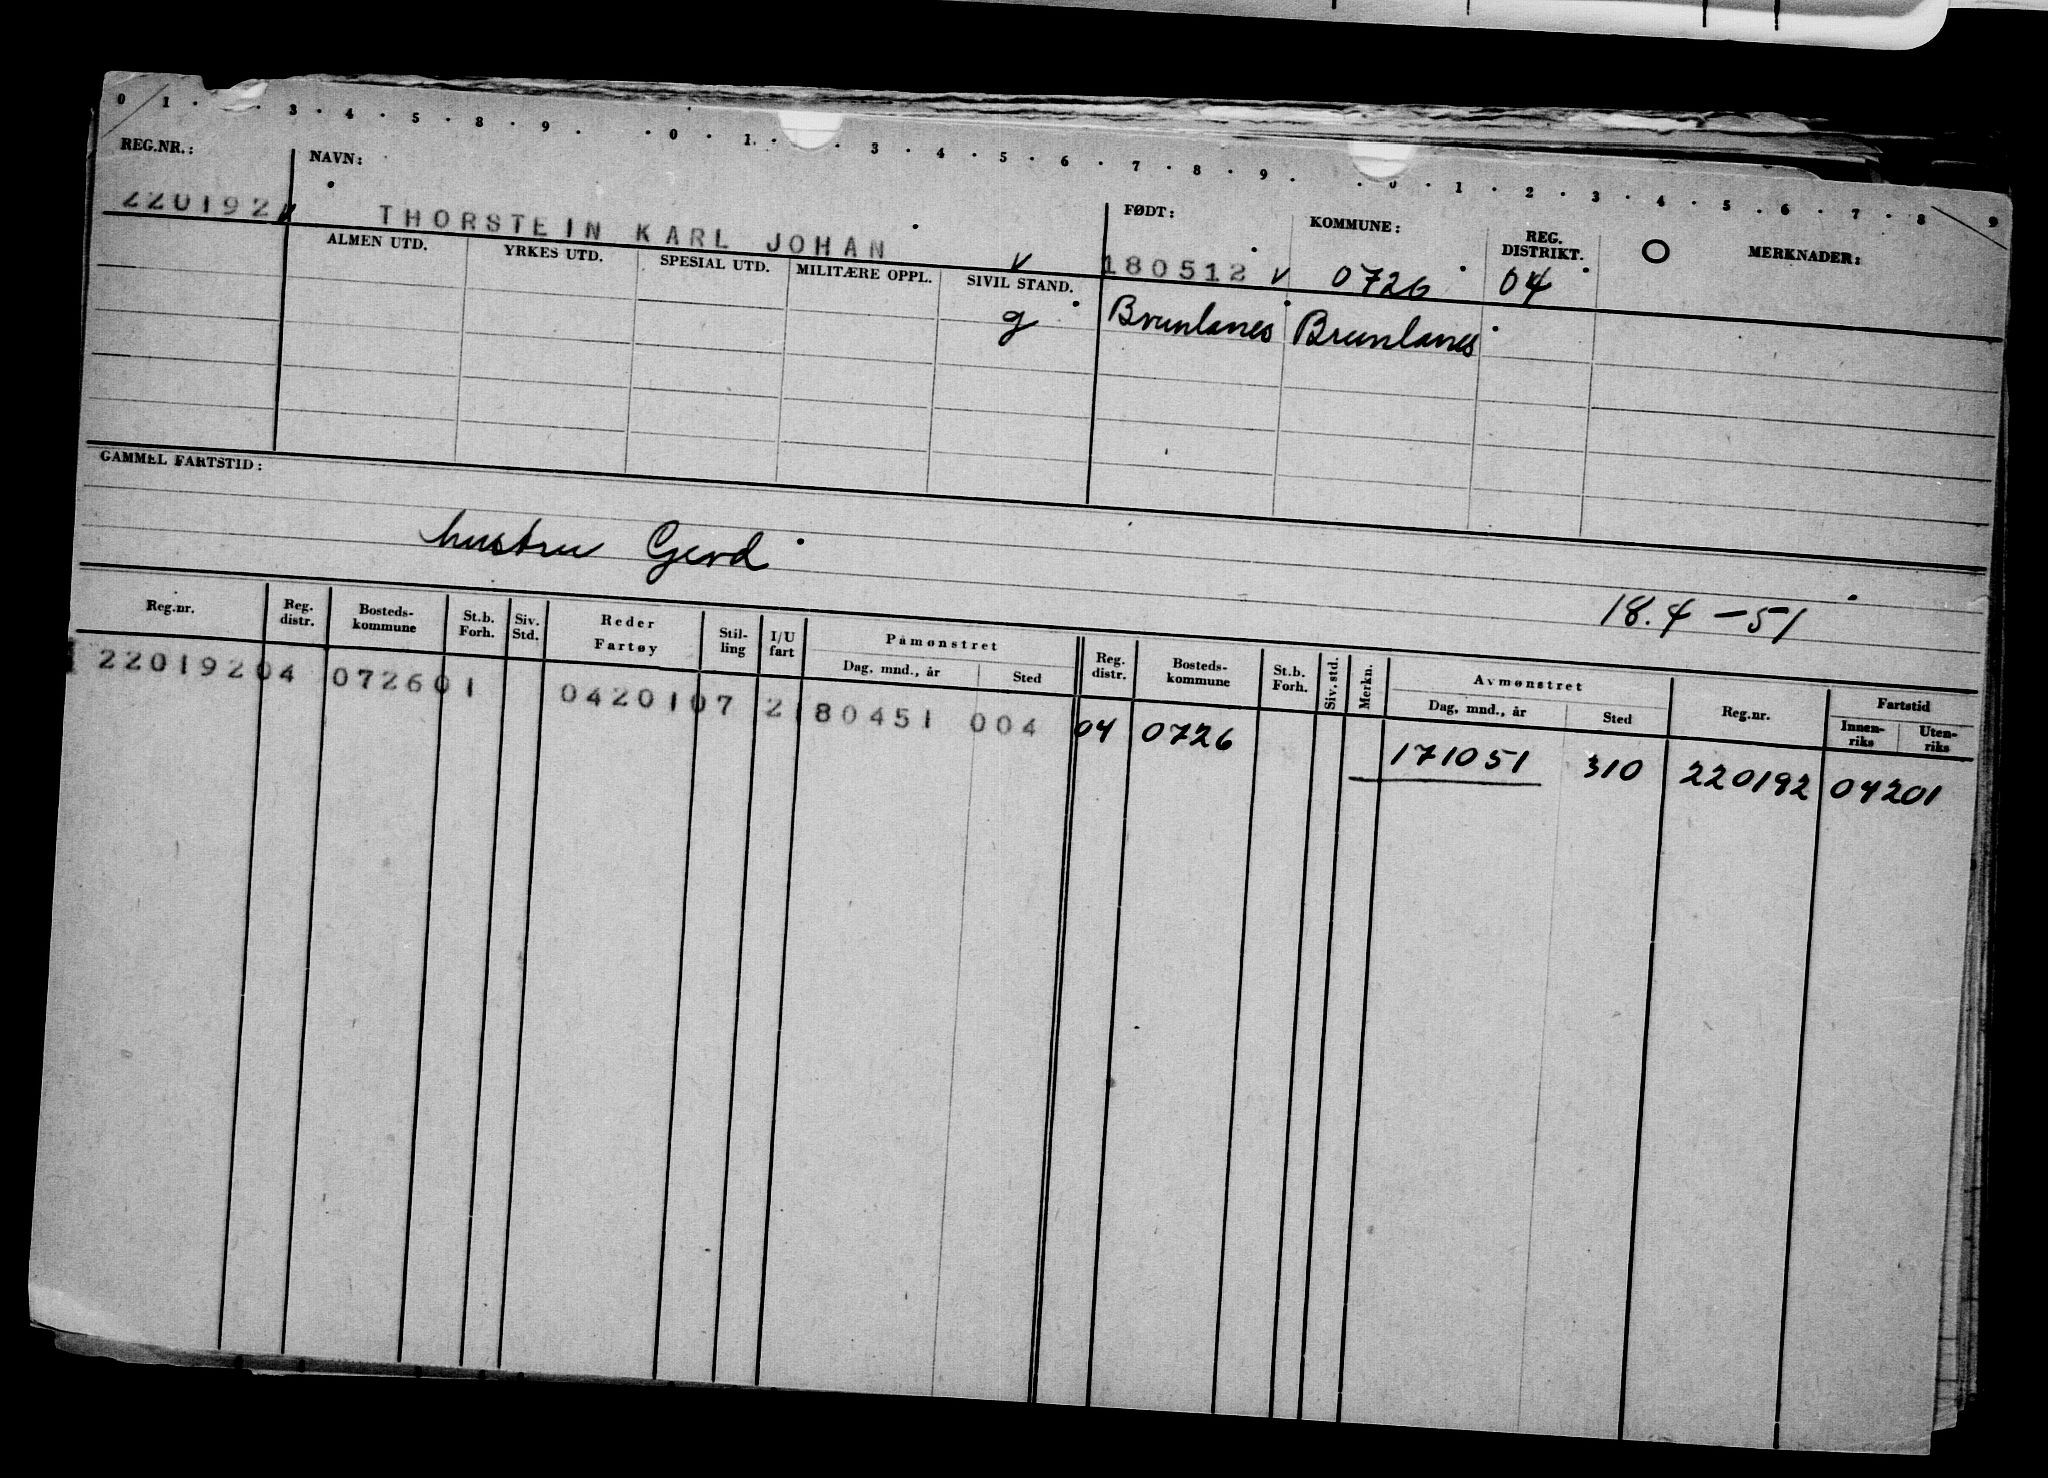 0 1 · · 3 · 4 · 5 · 8 · 9 · · 0 · 1 · · 3 · 4 · 5 · 6 · 7 · 8 · 9 · · 0 · 1 · 2 · 3 · 4 · 5 · 6 · 7 · 8 9
REG.NR.: NAVN: FØDT: KOMMUNE: REG. DISTRIKT. O MERKNADER:
220192 THORSTEIN KARL JOHAN 180512 0726 04
ALMEN UTD. YRKES UTD. SPESIAL UTD. MILITÆRE OPPL. SIVIL STAND.
g Brunlanes Brunlanes
GAMMEL FARTSTID:
hustru Gerd
18.4-51
Reg.nr. Reg. distr. Bosteds- kommune St.b. Forh. Siv. Std. Reder Fartøy Stil- ling I/U fart Påmønstret Dag, mnd., år Sted Reg. distr. Bosteds- kommune St.b. Forh. Siv. std. Merkn. Avmønstret Dag, mnd., år Sted Reg.nr. Fartstid Innen- riks Uten- riks
22019204 072601 0420107 2180451 004 04 0726 171051 310 220192 04201